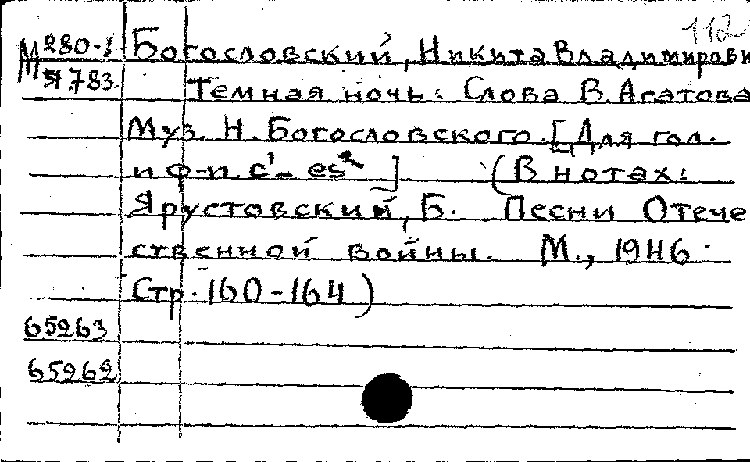 112
М 280-1 Богословский, Никита Владимирови
783 Темная ночь. Слова В. Агатова
Муз. Н. Богословского. [Для гол.
и ф-п. c¹- es² ] (В нотах:
Ярустовский, Б. Песни Отече
ственной войны. М., 1946.
Стр. 160-164)
65963
65962